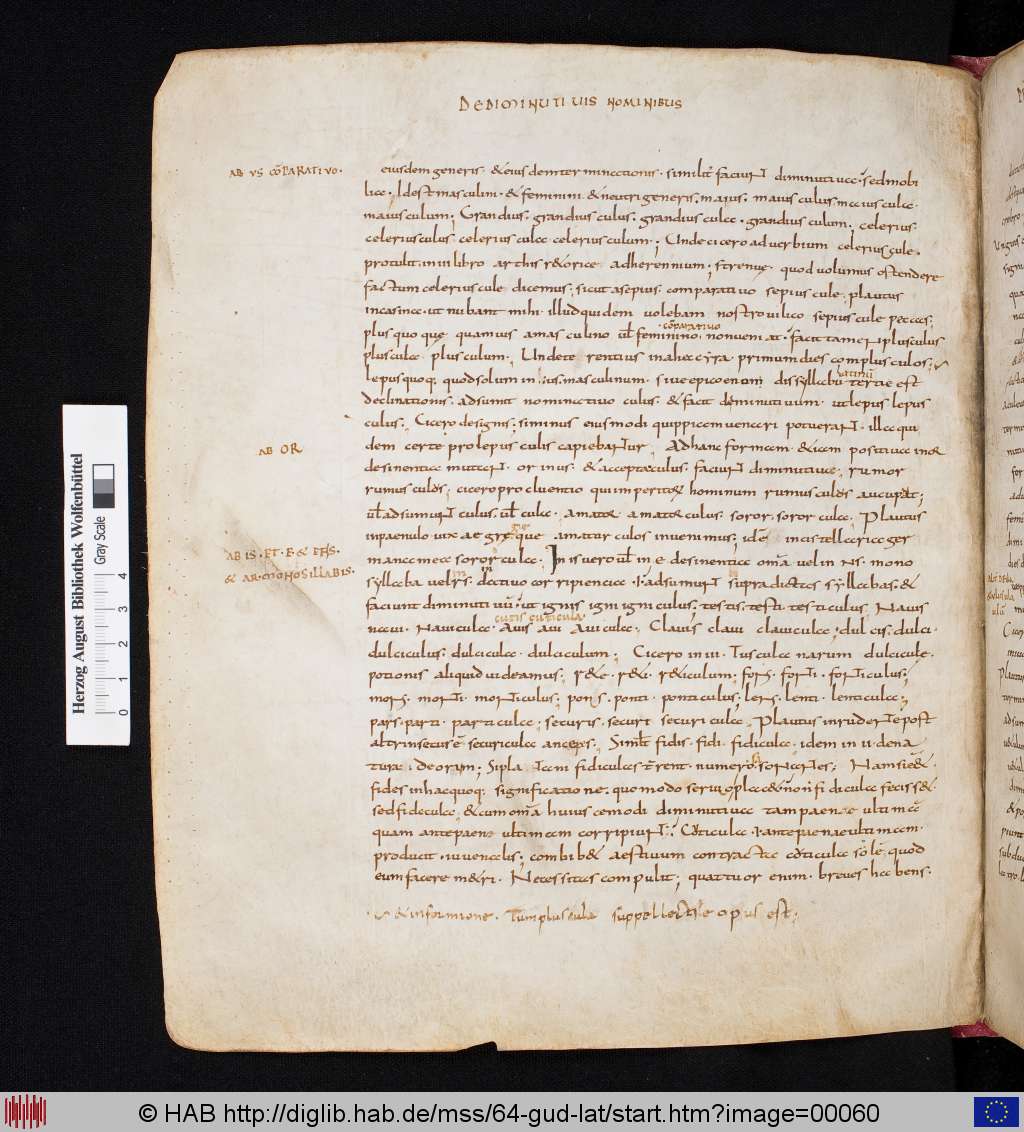 DE DIMINUTIVIS NOMINIBUS
AB VS COPARATIVO.
eiusdem generis. & eiusdem terminationis. similit faciunt diminutiua. sed mobi
lia. Id est masculini. & feminini. & neutri generis. maius. maius culus maius cula.
maius culum; Grandius. grandius culus. grandius cula. grandius culum. celerius.
celerius culus celerius cula celerius culum; Unde cicero aduerbium celerius cule.
protulit. in III libro artis rethorice ad herennium; strenue. quod uolumus ostendere
factum celerius cule dicemus; sicut a sepius. comparatiuo sepius cule. plautus
incasina. ut nubant mihi. illud quidem uolebam nostro uilico sepius cule
coparatiuo
plus quoque quamuis a masculino ul feminino. non ueniat. facit tamen plusculus
plus cula. plus culum; Unde terentius in a primum dies complusculos;
lepus quoq; quod solum in us. masculinum. siue epicoenum dissyllabu tertiae est
declinationis. adsumit nominatiuo culus. & facit deminutiuum. ut lepus lepus
culus; Cicero designis; siminus eiusmodi quippiam uenari potuerant. illa qui
AB OR
dem certe prolepus culis capiebantur; Ad hanc formam. & iam positiua in or
desinentia mutant. or in us. & accepta culus. faciunt diminutiua; rumor
rumus culus; cicero pro cluentio qui imperitor hominum rumus culos aucupat;
ul adsumunt culus. ul cula. amator amator culus. soror. soror cula. Plautus
inpaenulo que amator culos inuenimus; ide in cistellaria ger
AB IS. ET. E. & ENS.
mana mea soror cula. In is uero ul in e desinentia oma uel in ns. mono
& AR. MONOSILLABIS.
syllaba uel rs. datiuo corripientia i. adsumunt supra dictas syllabas. &
faciunt diminutiuu. ut ignis igni igniculus. testis. testi. testiculus Nauis
cutis cuticula.
naui. Nauicula. Auis aui Auicula. Clauis claui clauicula; dulcis. dulci.
dulciculus. dulcicula. dulciculum; Cicero in III. Tusculanarum dulcicule.
potionis aliquid uideamus; rete. reti. reticulum; fors. forti. forticulus;
mors. morti. morticulus; pons. ponti. ponticulus. lens. lenti. lenticula;
pars. parti. particula; securis. securi securicula. Plautus in rudente post
altrinsecus e securicula anceps; Simil fidis. fidi. fidicula. idem in II. dena
tura. deorum; Si plaTani fidiculas frent numero sonantes; Nam si &
fides in hac quoq; significatione. quomodo
sed fidecula. & cum oma huius cemodi diminutiua tam paene ultima
quam antepaene ultimam corripiunt. Canticula. i. antepaenaultimam.
producit. iuuenalis; combib& aestiuum contracta canticula sole. quod
eum facere metri. Necessitas compulit; quattuor enim. breues habens.
& informione. Tum plus cula suppellectile opus est;
Herzog August Bibliothek Wolfenbüttel
Gray Scale
0 1 2 3 4
© HAB http://diglib.hab.de/mss/64-gud-lat/start.htm?image=00060